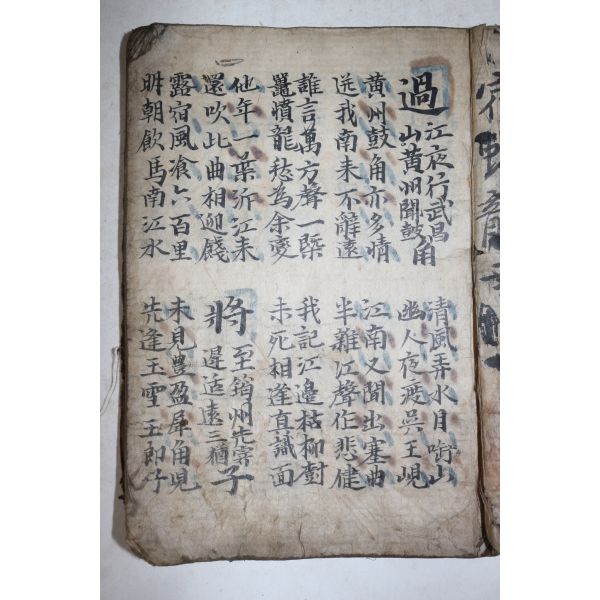 過江夜行武昌
山黃州聞鼓角
清風弄水月啣山
幽人夜度吳王峴
黃州鼓角亦多情
送我南来不辭遠
江南又聞出塞曲
半雜江聲作悲健
誰言萬方聲一槩
鼉憤龍愁為余變
我記江邊枯柳樹
未死相逢真識面
他年一葉泝江来
還吹此曲相迎餞
將至筠州先寄
遲适遠三猶子
露宿風飡六百里
明朝飲馬南江水
未見豐盈犀角兒
先逢玉雪王郎子